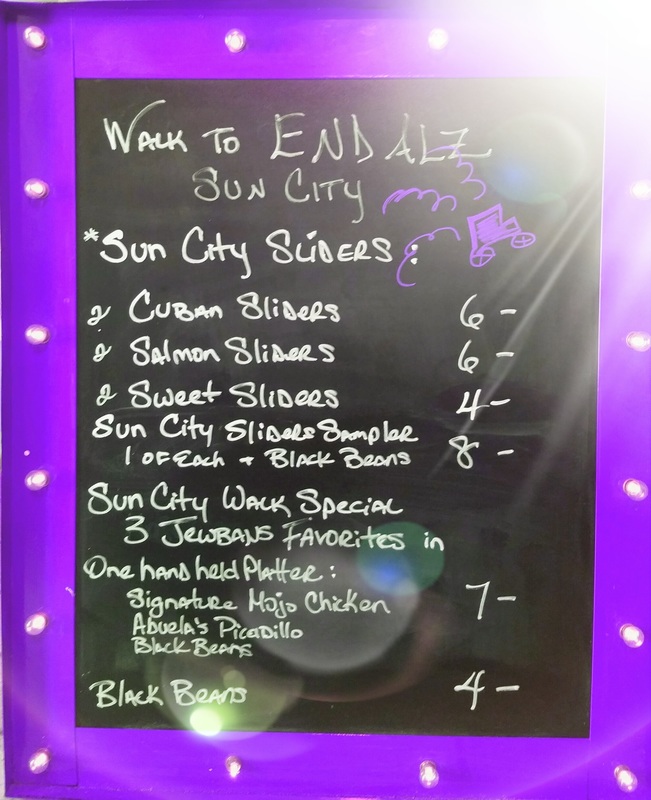 Walk to ENDALZ
Sun City
*Sun City Sliders:
2 Cuban Sliders 6-
2 Salmon Sliders 6-
2 Sweet Sliders 4-
Sun City Sliders Sampler
1 of Each + Black Beans 8-
Sun City Walk Special
3 Jewbans Favorites in
One hand held Platter:
Signature Mojo Chicken 7-
Abuela's Picadillo
Black Beans
Black Beans 4-